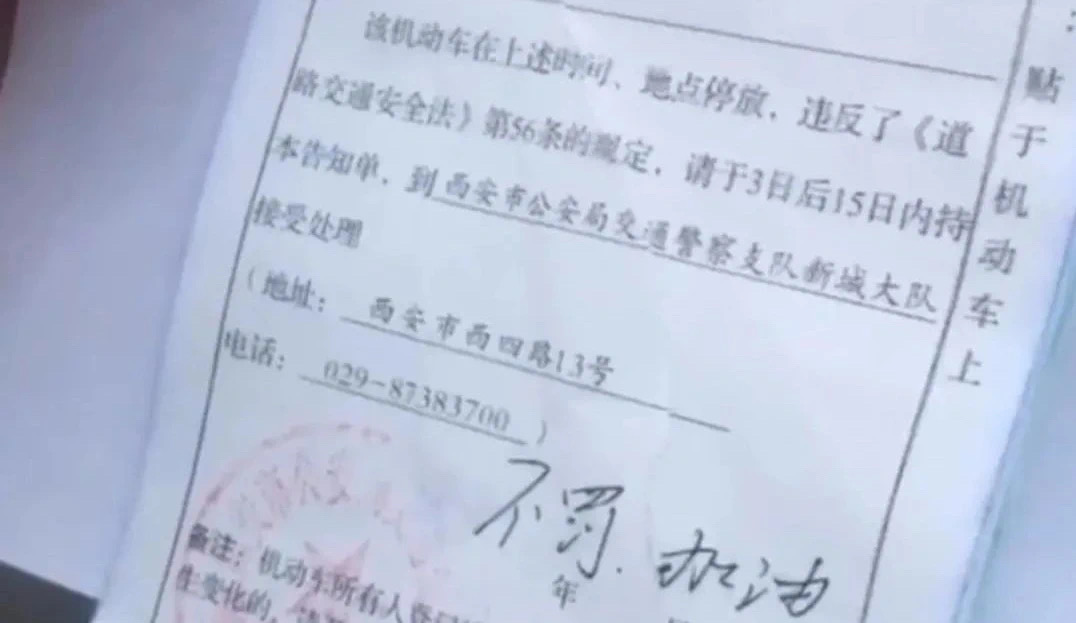 该机动车在上述时间、地点停放，违反了《道
路交通安全法》第56条的规定，请于3日后15日内持
本告知单，到西安市公安局交通警察支队新城大队
接受处理
（地址：西安市西四路13号
电话：029-87383700）
不罚.加油
年
备注：机动车所有人登记
生变化的，
：贴于机动车上